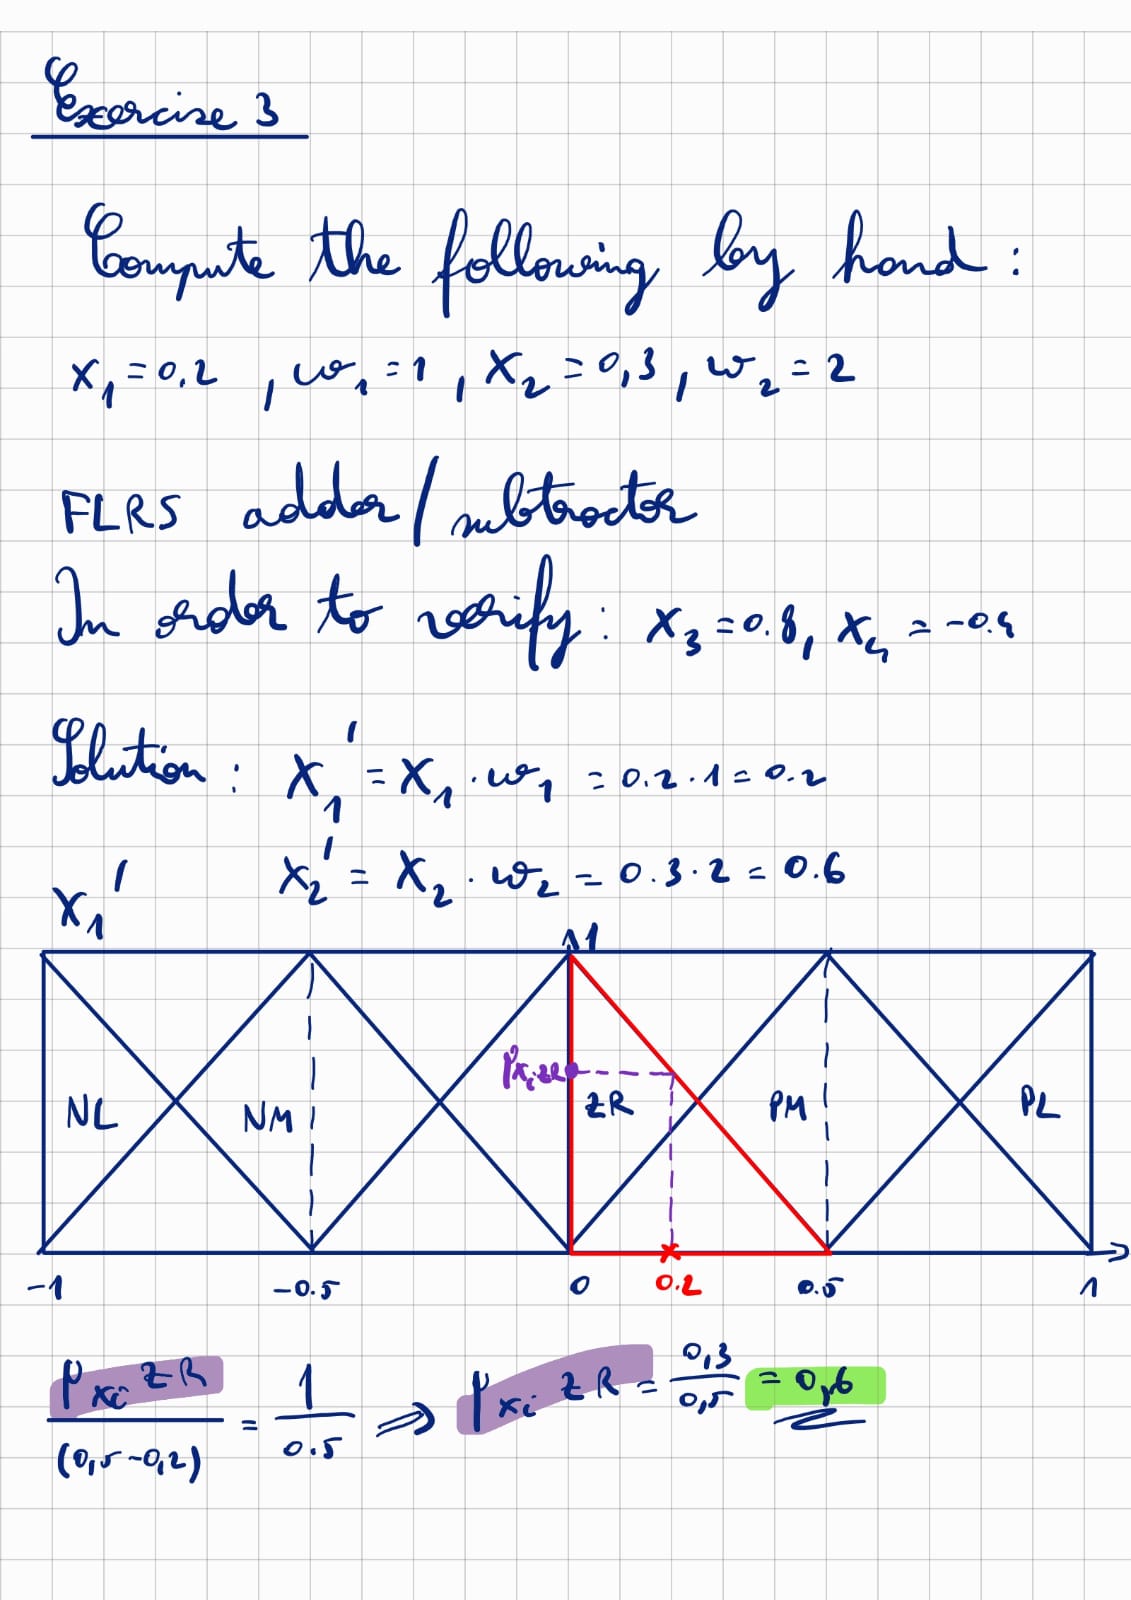 Exercise 3
Compute the following by hand:
x₁ = 0.2 , w₁ = 1 , x₂ = 0,3 , w₂ = 2
FLRS adder/subtractor
In order to verify: x₃ = 0.8, x₄ = -0.4
Solution: x₁' = x₁ · w₁ = 0.2 · 1 = 0.2
x₂' = x₂ · w₂ = 0.3 · 2 = 0.6
x₁'
1
NL NM μxᵢZR ZR PM PL
-1 -0.5 0 0.2 0.5 1
μxᵢ ZR / (0,5-0,2) = 1 / 0.5 ⇒ μxᵢ ZR = 0,3 / 0,5 = 0,6